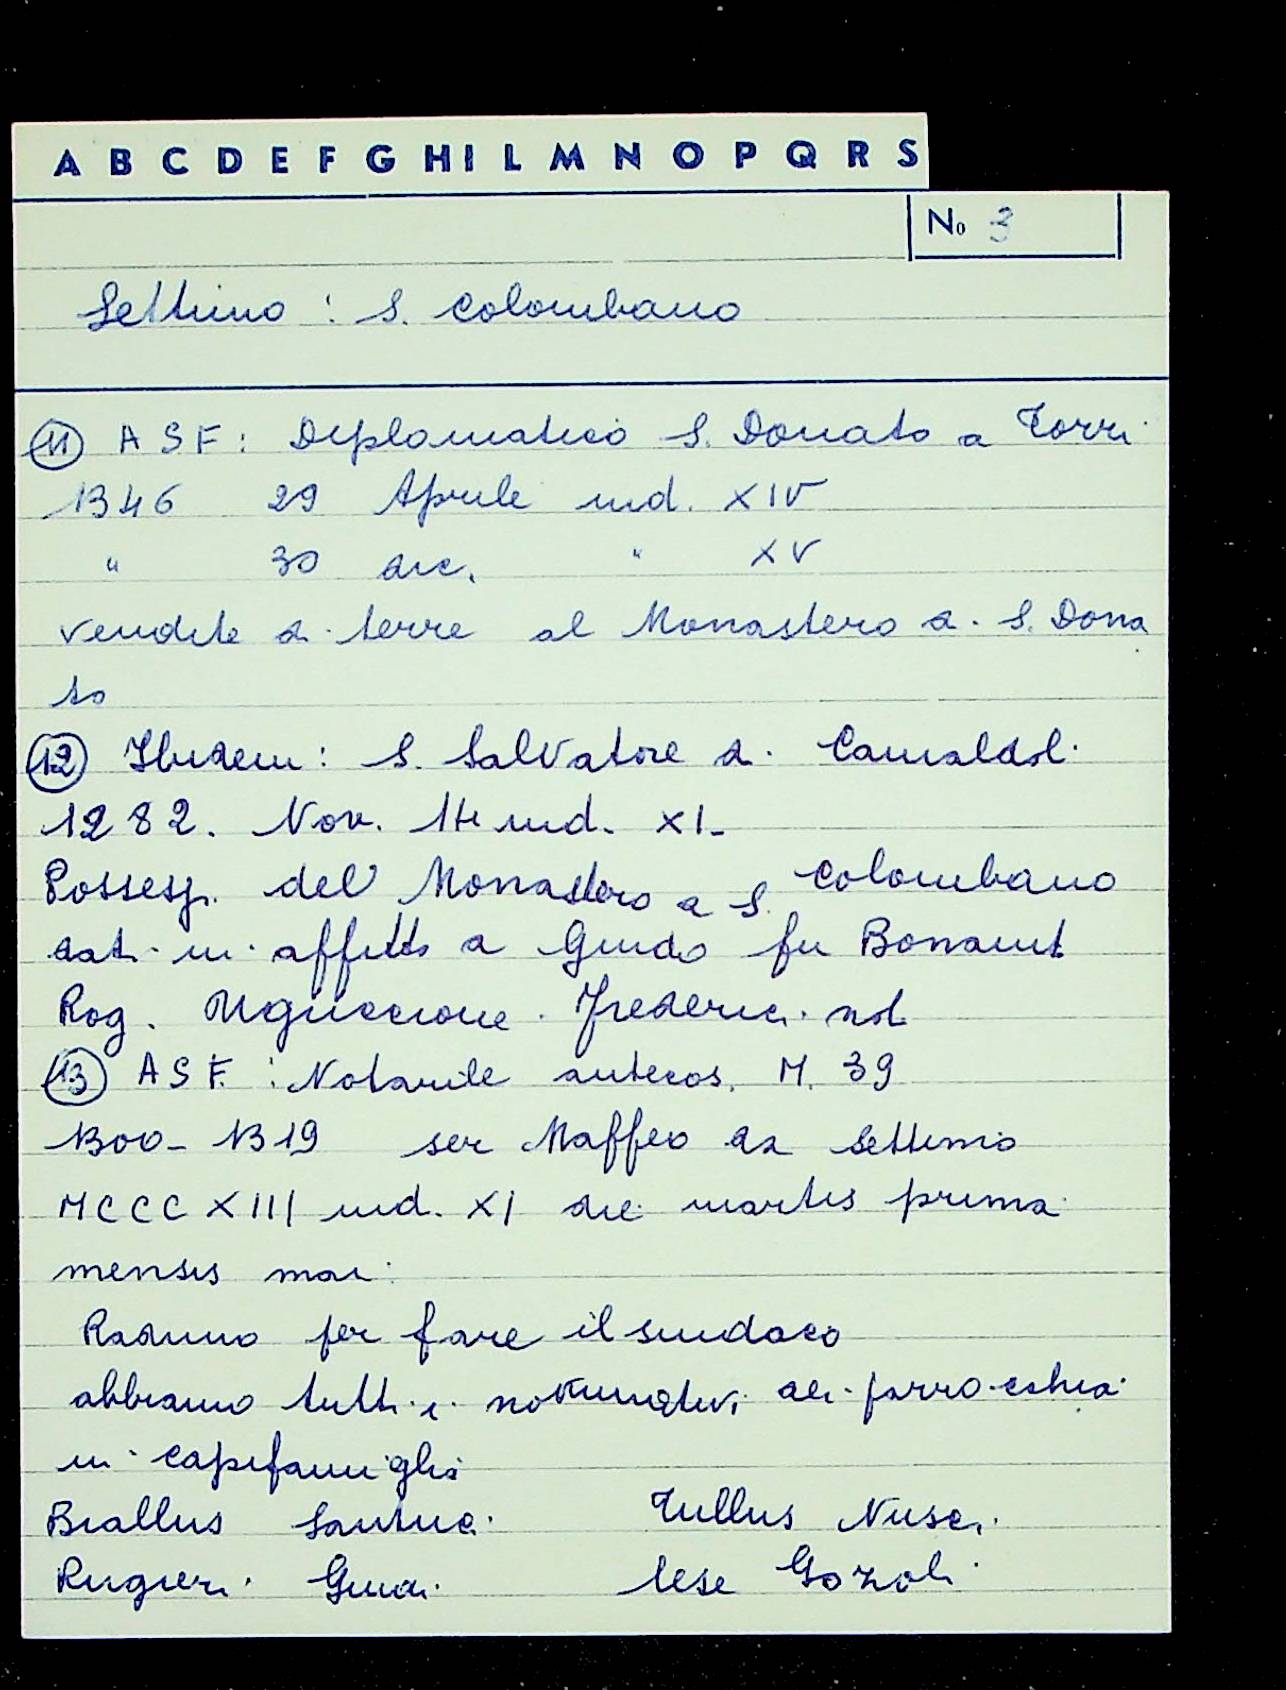 A B C D E F G H I L M N O P Q R S
No 3
Settimo : S. Colombano
(11) A S F : Diplomatico S. Donato a Torri
1346 29 Aprile ind. XIV
" 30 dic. " XV
vendite di terre al Monastero di S. Dona
to
(12) Ibidem : S. Salvatore di Camaldoli
1282. Nov. 14 ind. XI-
Possess. del Monastero a S. Colombano
dati in affitto a Guido fu Bonaiut.
Rog. Uguccione Frederici not.
(13) A S F. : Notarile antecos. M. 39
1300 - 1319 ser Maffeo da Settimo
MCCCXIII ind. XI die martis prima
mensis mai
Raduno per fare il sindaco
abbiamo tutti i nominativi dei parrocchia
ni capifamiglia
Biallus Santuci Tullus Nusci
Rugieri Guidi Lese Gozoli